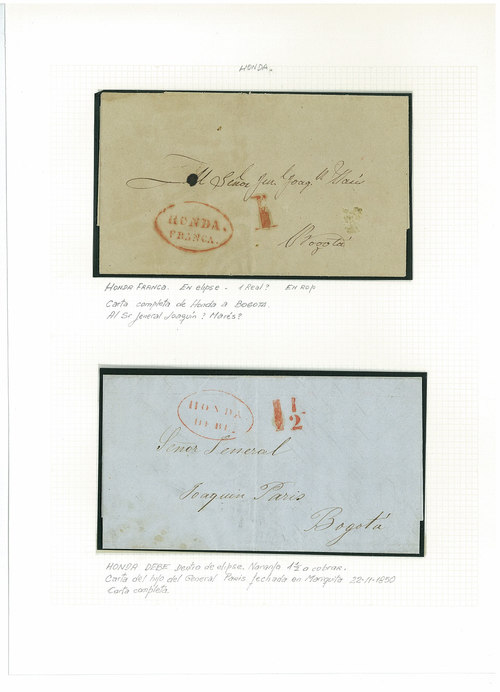 HONDA.
Al Señor Jen.l Joaq.n
HONDA.
FRANCA.
1
Bogotá
HONDA FRANCA. En elipse. 1 Real? En rojo
Carta completa de Honda a BOGOTA.
Al Sr General Joaquin ? Marés?
HONDA
DEBE.
1 1/2
Señor General
Joaquin Paris
Bogotá
HONDA DEBE Dentro de elipse. Naranja 1 1/2 a cobrar.
Carta del hijo del General Paris fechada en Mariquita 22-11-1850
Carta completa.